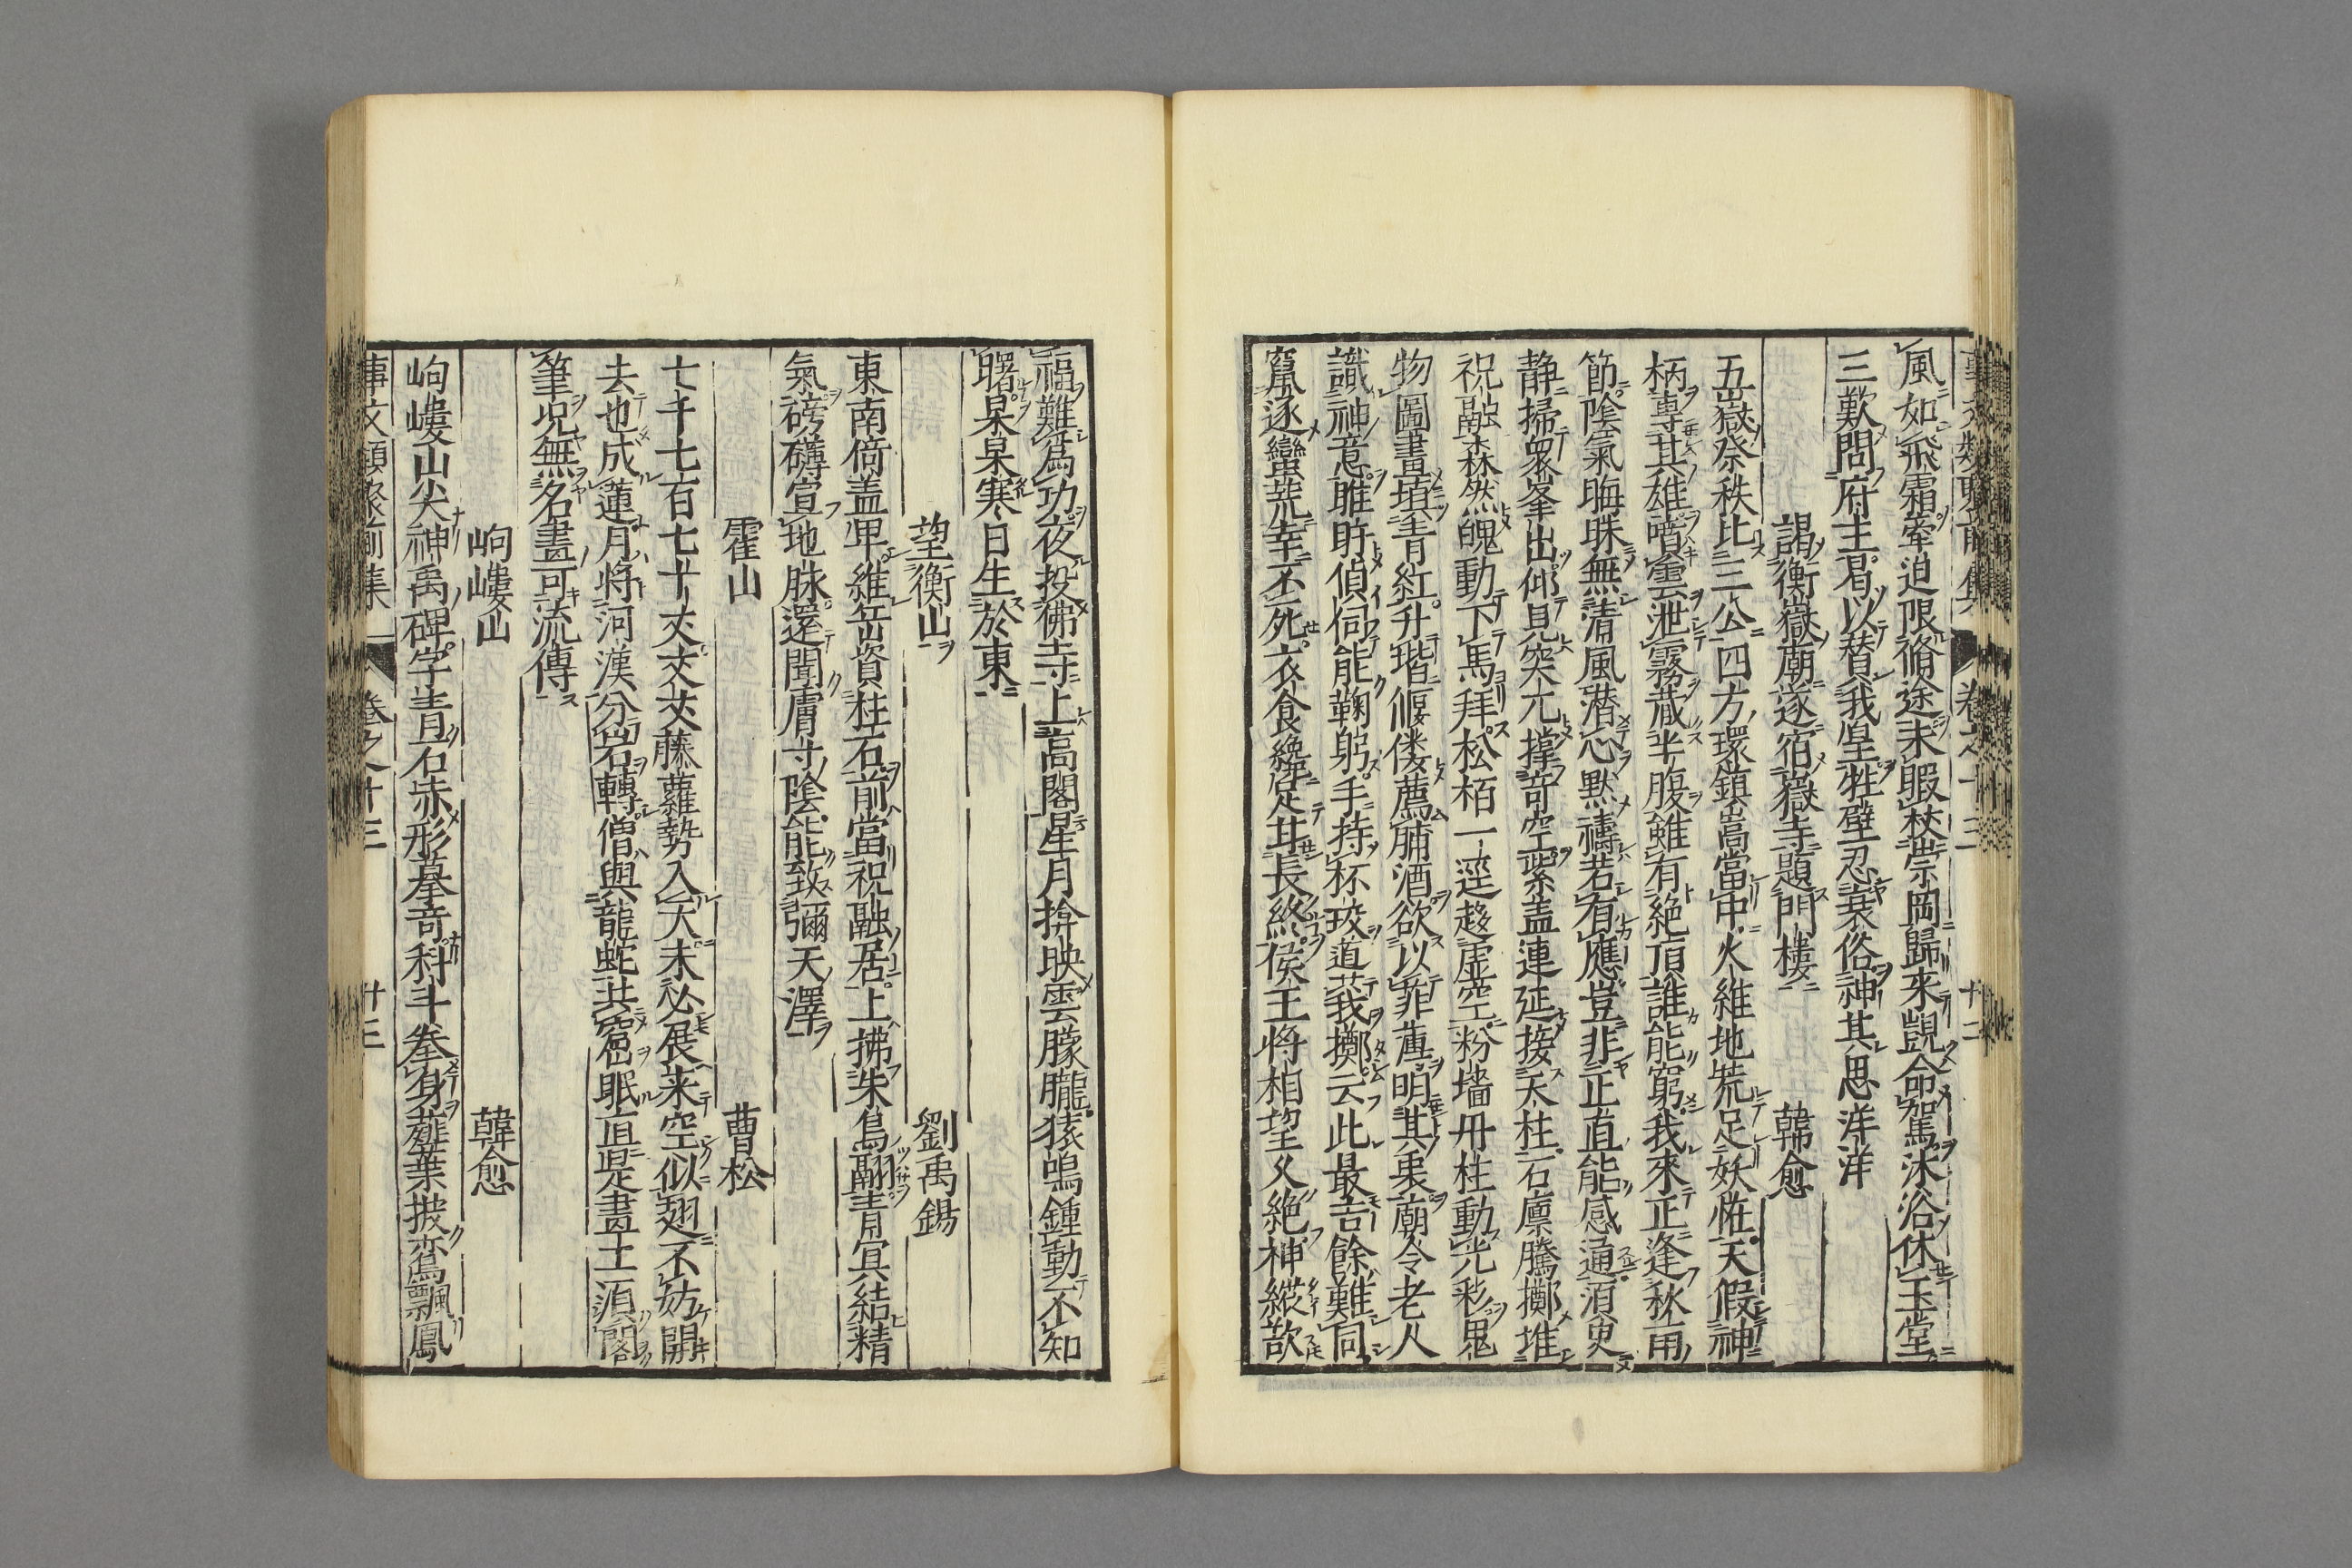 風如飛霜牽迫限脩途未暇杖崇岡歸來覬命駕沐浴休玉堂
三歎問府主曷以替我皇牲璧忍衰俗神其思洋洋
謁衡嶽廟遂宿嶽寺題門樓　韓愈
五嶽祭秩比三公四方環鎮嵩當中火維地荒足妖怪天假神
柄專其雄噴雲泄霧蔵半腹雖有絶頂誰能窮我來正逢秋雨
節陰氣晦昧無清風潜心默禱若有應豈非正直能感通須臾
静掃衆峯出仰見突兀撑竒空紫盖連延接天柱石廪騰擲堆
祝融森然魄動下馬拜松栢一逕趍虚空粉墻丹柱動光彩鬼
物圖畫填青紅升堦傴僂薦脯酒欲以菲薄明其衷廟令老人
識神意睢盱偵伺能鞠躬手持杯珓道我擲云此最吉餘難同
竄逐蠻荒幸不死衣食纔足甘長終侯王將相望久絶神縱欲
福難爲功夜投佛寺上高閣星月揜映雲朦朧猿鳴鍾動不知
曙杲杲寒日生於東
望衡山　劉禹錫
東南倚盖卑維岳資柱石前當祝融居上拂朱鳥翮青冥結精
氣磅礴宣地脉還聞膚寸陰能致彌天澤
霍山　曹松
七千七百七十丈丈丈藤蘿勢入天未必展來空似翅不妨開
去也成蓮月將河漢分岩轉僧與龍蛇共窟眠直是畫工須閣
筆况無名畫可流傳
岣嶁山　韓愈
岣嶁山尖神禹碑字青石赤形摹竒科斗拳身薤葉披鸞飄鳳
事文類聚前集　卷之十三　廿三